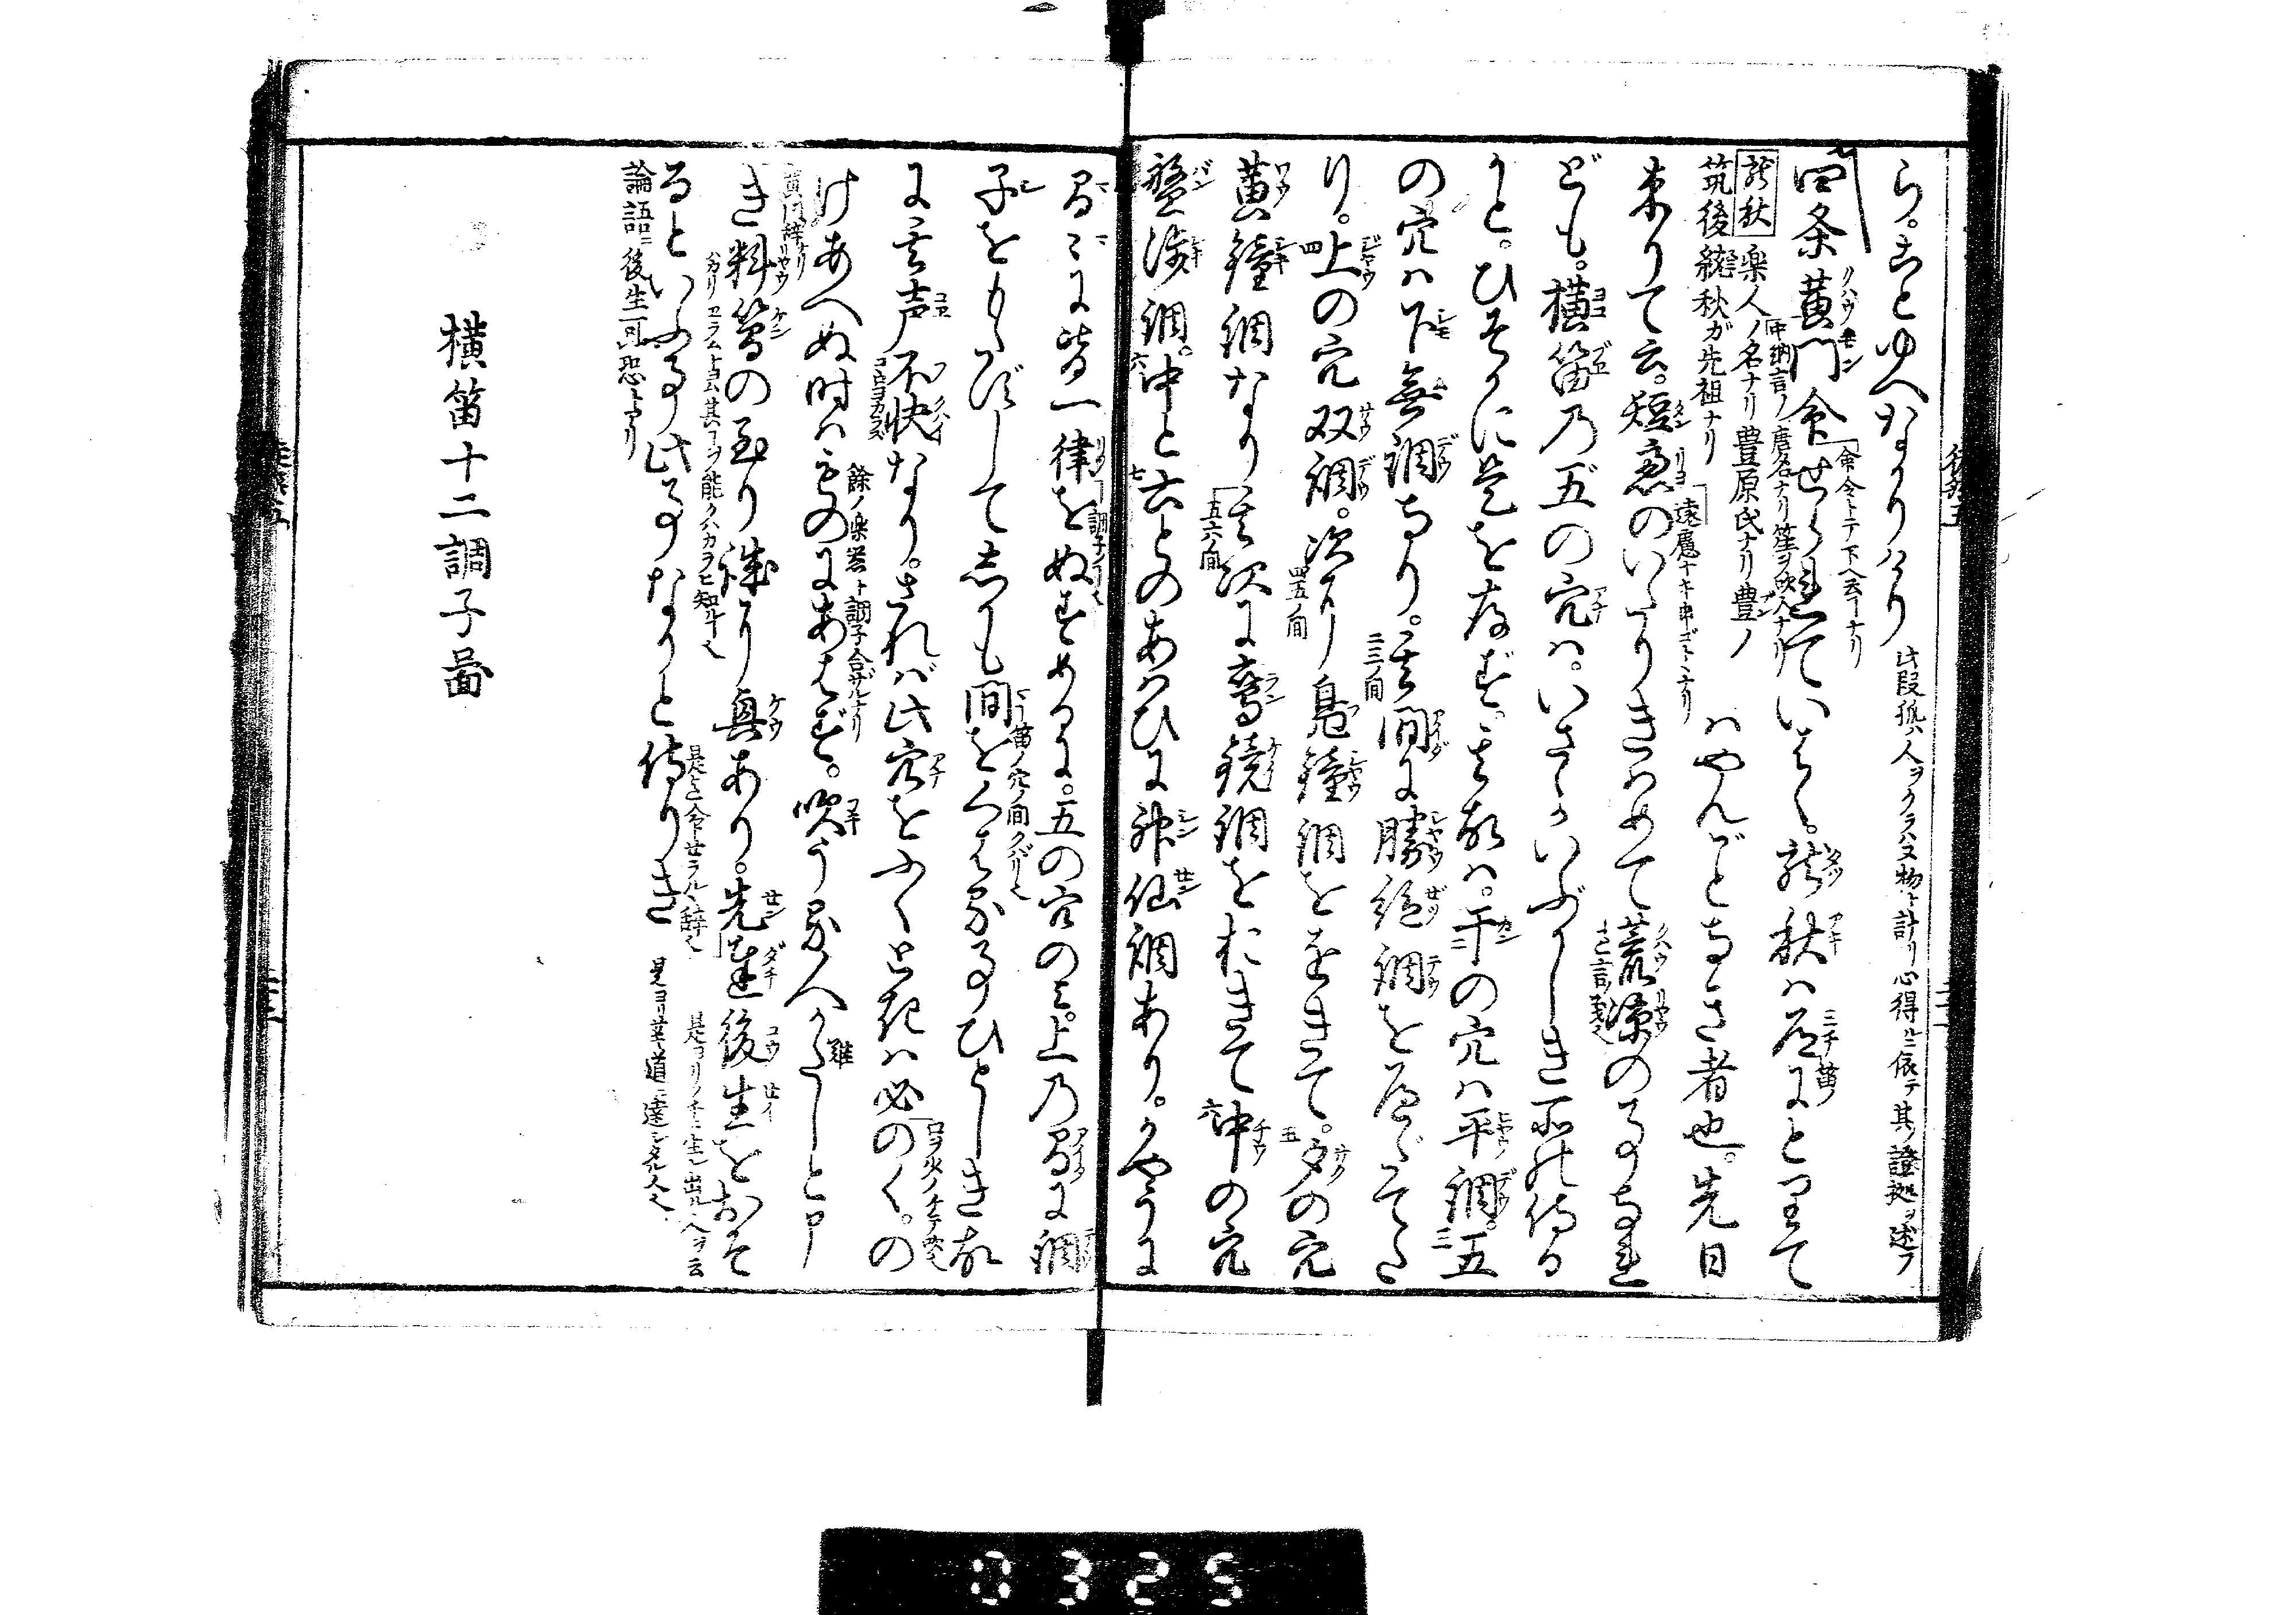 ら。あしとゆへなかりけり
此段孤ハ人ヲクラハヌ物ト計リ心得ルニ依テ其ノ證拠ヲ述フ
四条黄門命せられていはく。龍秋は道にとりて
命令トテ下ヘ云フナリ
中納言ノ唐名ナリ笙ヲ吹人ナリ
龍秋 楽人ノ名ナリ豊原氏ナリ豊ノ
筑後統秋ガ先祖ナリ
はやんごとなき者也。先日
遠慮ナキ申ゴトナリ
来りて云。短慮のいたりきはめて荒涼の事なれ
ども。横笛乃五の穴は。いさゝかいぶかしき所の侍る
かと。ひそかに是を存ず。其故は。干の穴は平調。五
の穴は下無調なり。其間に勝絶調をへだてた
二三ノ間
り。上の穴双調。次に鳧鐘調ををきて。夕の穴
四五ノ間
黄鐘調なり其次に鸞鏡調をおきて中の穴
五六ノ間
盤渉調。中と六とのあはひに神仙調あり。かやうに
間々に皆一律をぬすめるに。五の穴のみ上乃間に調
子をもたずして而も間をくばる事ひとしき故
笛ノ穴ノ間クバリ也
に其声不快なり。されば此穴をふく時は必のく。の
コヽロヨカラズ
けあへぬ時はものにあはず。吹うる人かたしと申
餘ノ楽器ト調子合ザルナリ
難
き料簡の至り誠に興あり。先達後生をおそ
黄門ノ辞ナリ
るといふ事此事なりと侍りき
是迄命セラルヽ辞也
是ヨリノチニ生レ出ル人ヲ云
是ヨリ先ニ道ニ達シタル人也
論語ニ後生可恐トアリ
横笛十二調子圖
0325